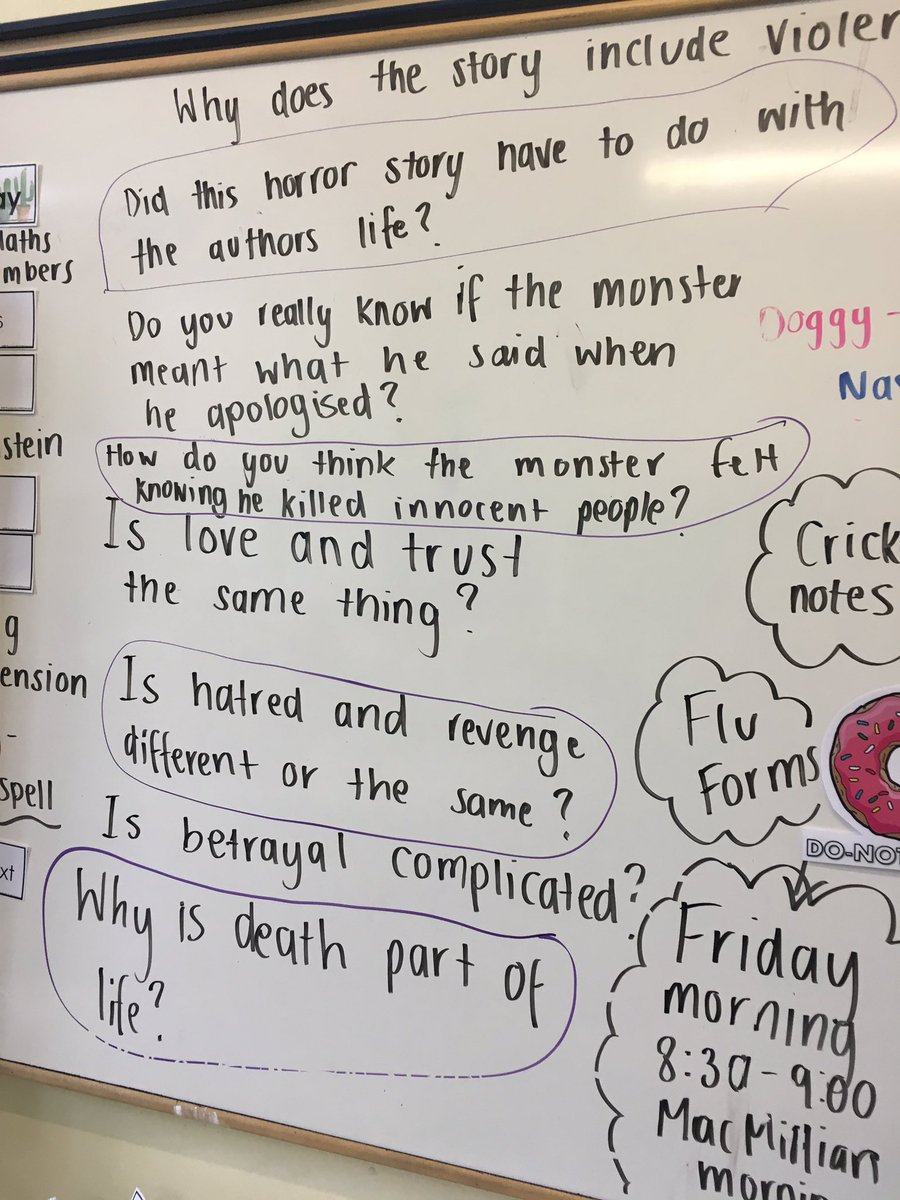 Why does the story include Violen
Did this horror story have to do with
the authors life?
Do you really know if the monster
meant what he said when
he apologised?
How do you think the monster felt
knowing he killed innocent people?
Is love and trust
the same thing?
Is hatred and revenge
different or the same?
Is betrayal complicated?
Why is death part of
life?
ay
laths
mbers
s
stein
g
ension
-
spell
xt
Doggy -
Na
Crick
notes
Flu
Forms
DO-NO
Friday
morning
8:30-9:00
MacMillian
mornin